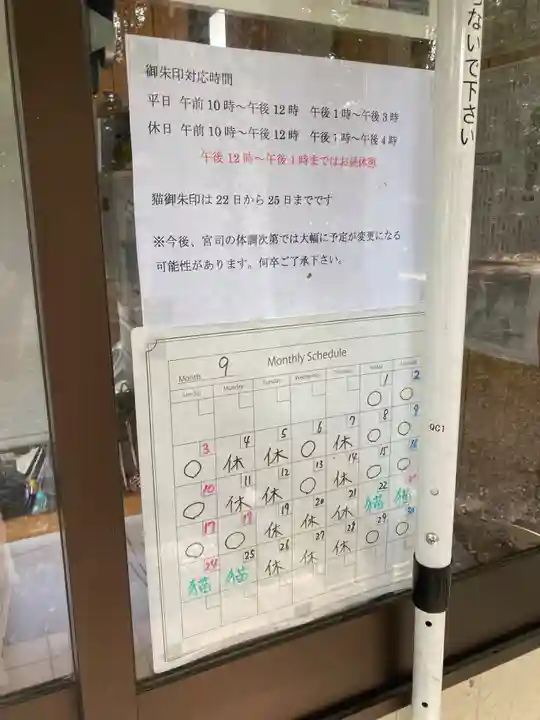 ないで下さい
御朱印対応時間
平日 午前10時～午後12時 午後1時～午後3時
休日 午前10時～午後12時 午後1時～午後4時
午後12時～午後1時まではお昼休憩
猫御朱印は22日から25日までです
※今後、宮司の体調次第では大幅に予定が変更になる
可能性があります。何卒ご了承下さい。
Month 9 Monthly Schedule
Sunday Monday Tuesday Wednesday Thursday Friday Saturday
1 2
○ ○
3 4 5 6 7 8 9
○ 休 休 ○ 休 ○ ○
10 11 12 13 14 15 16
○ 休 休 ○ 休 ○ ○
17 18 19 20 21 22 23
○ ○ 休 休 休 猫 猫
24 25 26 27 28 29 30
猫 猫 休 休 休 ○ ○
QC1